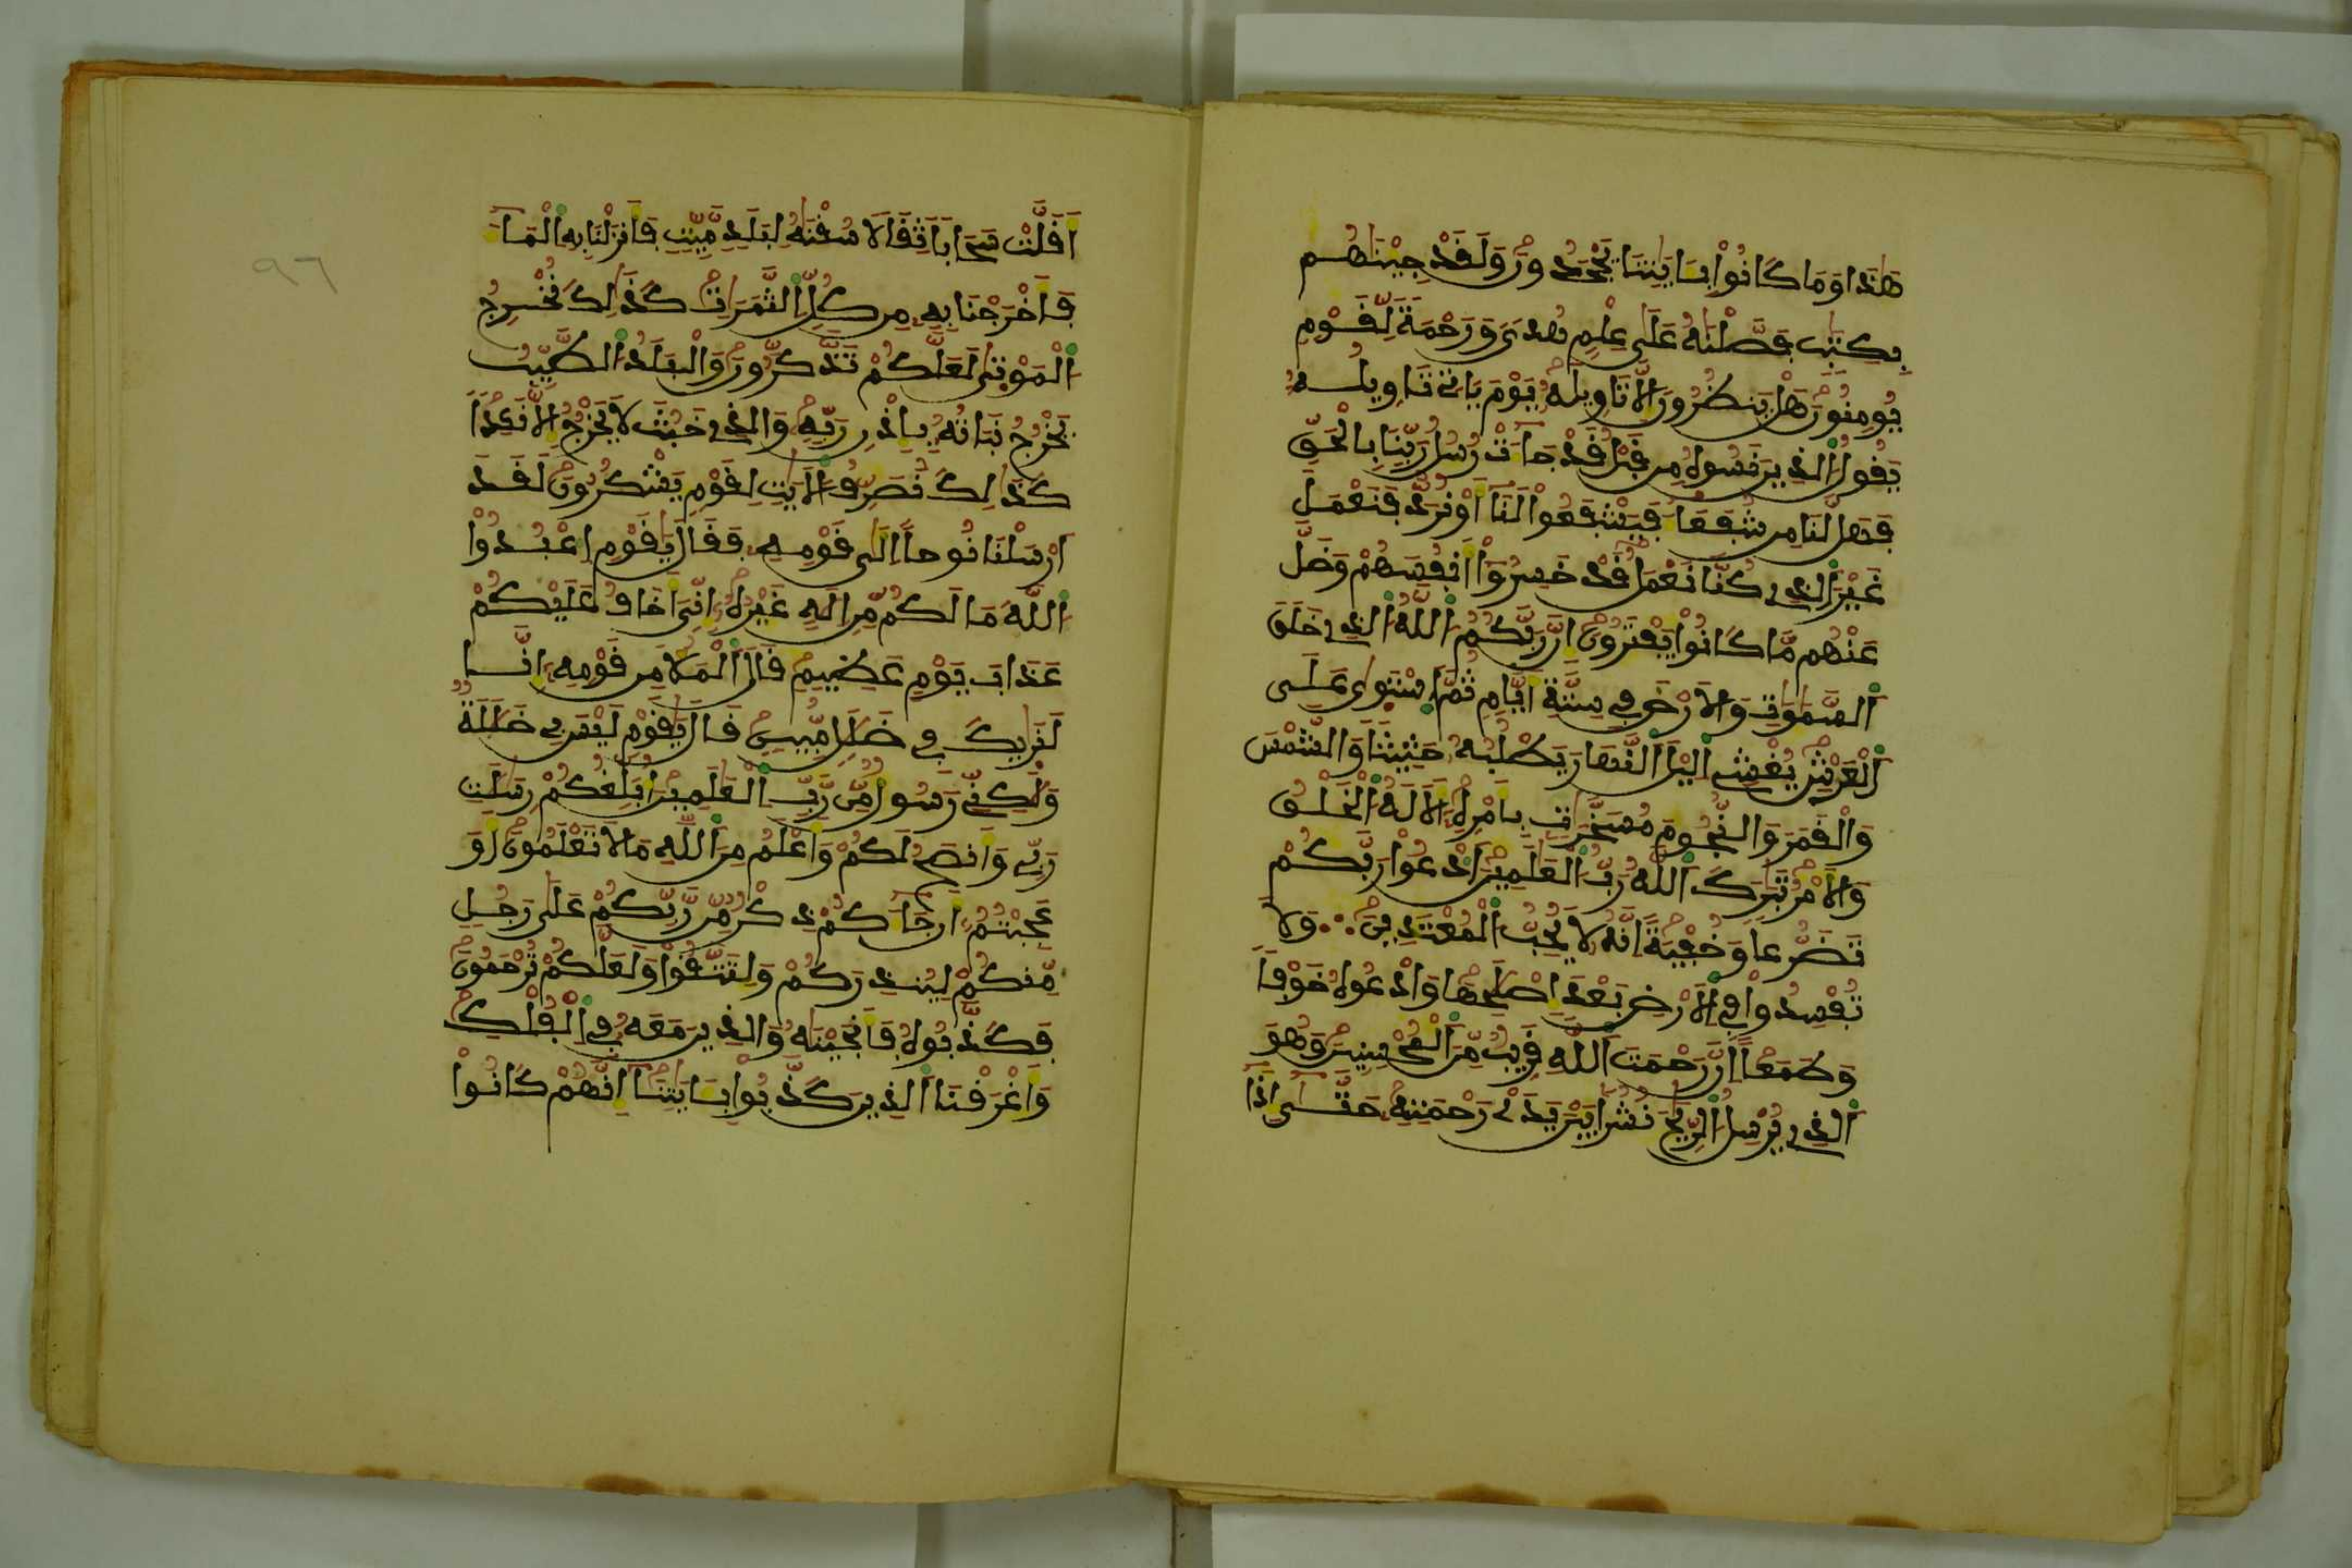 هَٰذَا وَمَا كَانُوا۟ بِـَٔايَٰتِنَا يَجْحَدُونَ وَلَقَدْ جِئْنَٰهُم
بِكِتَٰبٖ فَصَّلْنَٰهُ عَلَىٰ عِلْمٍ هُدىٗ وَرَحْمَةٗ لِّقَوْمٖ
يُومِنُونَ هَلْ يَنظُرُونَ إِلَّا تَاوِيلَهُۥ يَوْمَ يَاتِے تَاوِيلُهُۥ
يَقُولُ اُ۬لذِينَ نَسُوهُ مِن قَبْلُ قَدْ جَآءَتْ رُسُلُ رَبِّنَا بِالْحَقِّ
فَهَل لَّنَا مِن شُفَعَآءَ فَيَشْفَعُوا۟ لَنَآ أَوْ نُرَدُّ فَنَعْمَلَ
غَيْرَ اَ۬لذِے كُنَّا نَعْمَلُ قَدْ خَسِرُوٓا۟ أَنفُسَهُمْ وَضَلَّ
عَنْهُم مَّا كَانُوا۟ يَفْتَرُونَ إِنَّ رَبَّكُمُ اُ۬للَّهُ اُ۬لذِے خَلَقَ
اَ۬لسَّمَٰوَٰتِ وَالَارْضَ فِي سِتَّةِ أَيَّامٖ ثُمَّ اَ۪سْتَوَىٰ عَلَى
اَ۬لْعَرْشِ يُغْشِے اِ۬ليْلَ اَ۬لنَّهَارَ يَطْلُبُهُۥ حَثِيثاٗ وَالشَّمْسَ
وَالْقَمَرَ وَالنُّجُومَ مُسَخَّرَٰتِۢ بِأَمْرِهِۦٓ أَلَا لَهُ اُ۬لْخَلْقُ
وَالَامْرُ تَبَٰرَكَ اَ۬للَّهُ رَبُّ اُ۬لْعَٰلَمِينَ اَ۟دْعُوا۟ رَبَّكُمْ
تَضَرُّعاٗ وَخُفْيَةً اِنَّهُۥ لَا يُحِبُّ اُ۬لْمُعْتَدِينَ وَلَا
تُفْسِدُوا۟ فِي اِ۬لَارْضِ بَعْدَ إِصْلَٰحِهَا وَادْعُوهُ خَوْفاٗ
وَطَمَعاً اِنَّ رَحْمَتَ اَ۬للَّهِ قَرِيبٞ مِّنَ اَ۬لْمُحْسِنِينَ وَهُوَ
اَ۬لذِے يُرْسِلُ اُ۬لرِّيَٰحَ نُشُراَۢ بَيْنَ يَدَےْ رَحْمَتِهِۦ حَتَّىٰٓ إِذَآ
٩٦
أَقَلَّتْ سَحَاباٗ ثِقَالاٗ سُقْنَٰهُ لِبَلَدٖ مَّيِّتٖ فَأَنزَلْنَا بِهِ اِ۬لْمَآءَ
فَأَخْرَجْنَا بِهِۦ مِن كُلِّ اِ۬لثَّمَرَٰتِ كَذَٰلِكَ نُخْرِجُ
اُ۬لْمَوْتَىٰ لَعَلَّكُمْ تَذَّكَّرُونَ وَالْبَلَدُ اُ۬لطَّيِّبُ
يَخْرُجُ نَبَاتُهُۥ بِإِذْنِ رَبِّهِۦ وَالذِے خَبُثَ لَا يَخْرُجُ إِلَّا نَكِداٗ
كَذَٰلِكَ نُصَرِّفُ اُ۬لَايَٰتِ لِقَوْمٖ يَشْكُرُونَ لَقَدَ
اَرْسَلْنَا نُوحاً اِلَىٰ قَوْمِهِۦ فَقَالَ يَٰقَوْمِ اِ۟عْبُدُوا۟
اُ۬للَّهَ مَا لَكُم مِّنِ اِلَٰهٍ غَيْرُهُۥٓ إِنِّيَ أَخَافُ عَلَيْكُمْ
عَذَابَ يَوْمٍ عَظِيمٖ قَالَ اَ۬لْمَلَأُ مِن قَوْمِهِۦٓ إِنَّا
لَنَرَىٰكَ فِي ضَلَٰلٖ مُّبِينٖ قَالَ يَٰقَوْمِ لَيْسَ بِے ضَلَٰلَةٞ
وَلَٰكِنِّے رَسُولٞ مِّن رَّبِّ اِ۬لْعَٰلَمِينَ أُبَلِّغُكُمْ رِسَٰلَٰتِ
رَبِّے وَأَنصَحُ لَكُمْ وَأَعْلَمُ مِنَ اَ۬للَّهِ مَا لَا تَعْلَمُونَ أَوَ
عَجِبْتُمُۥٓ أَن جَآءَكُمْ ذِكْرٞ مِّن رَّبِّكُمْ عَلَىٰ رَجُلٖ
مِّنكُمْ لِيُنذِرَكُمْ وَلِتَتَّقُوا۟ وَلَعَلَّكُمْ تُرْحَمُونَ
فَكَذَّبُوهُ فَأَنجَيْنَٰهُ وَالذِينَ مَعَهُۥ فِي اِ۬لْفُلْكِ
وَأَغْرَقْنَا اَ۬لذِينَ كَذَّبُوا۟ بِـَٔايَٰتِنَآ إِنَّهُمْ كَانُوا۟